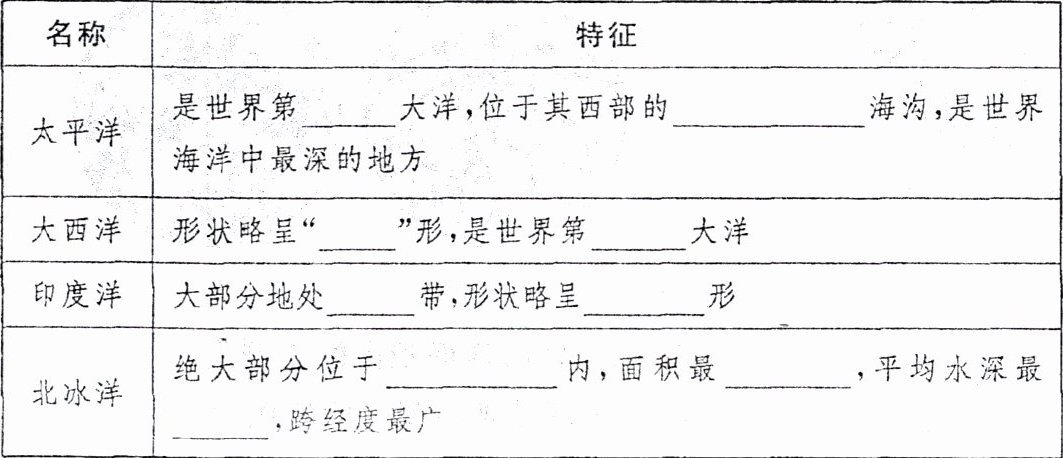 名称 特征
太平洋 是世界第______大洋,位于其西部的____________海沟,是世界
海洋中最深的地方
大西洋 形状略呈“_____”形,是世界第______大洋
印度洋 大部分地处______带,形状略呈________形
北冰洋 绝大部分位于___________内,面积最________,平均水深最
______,跨经度最广